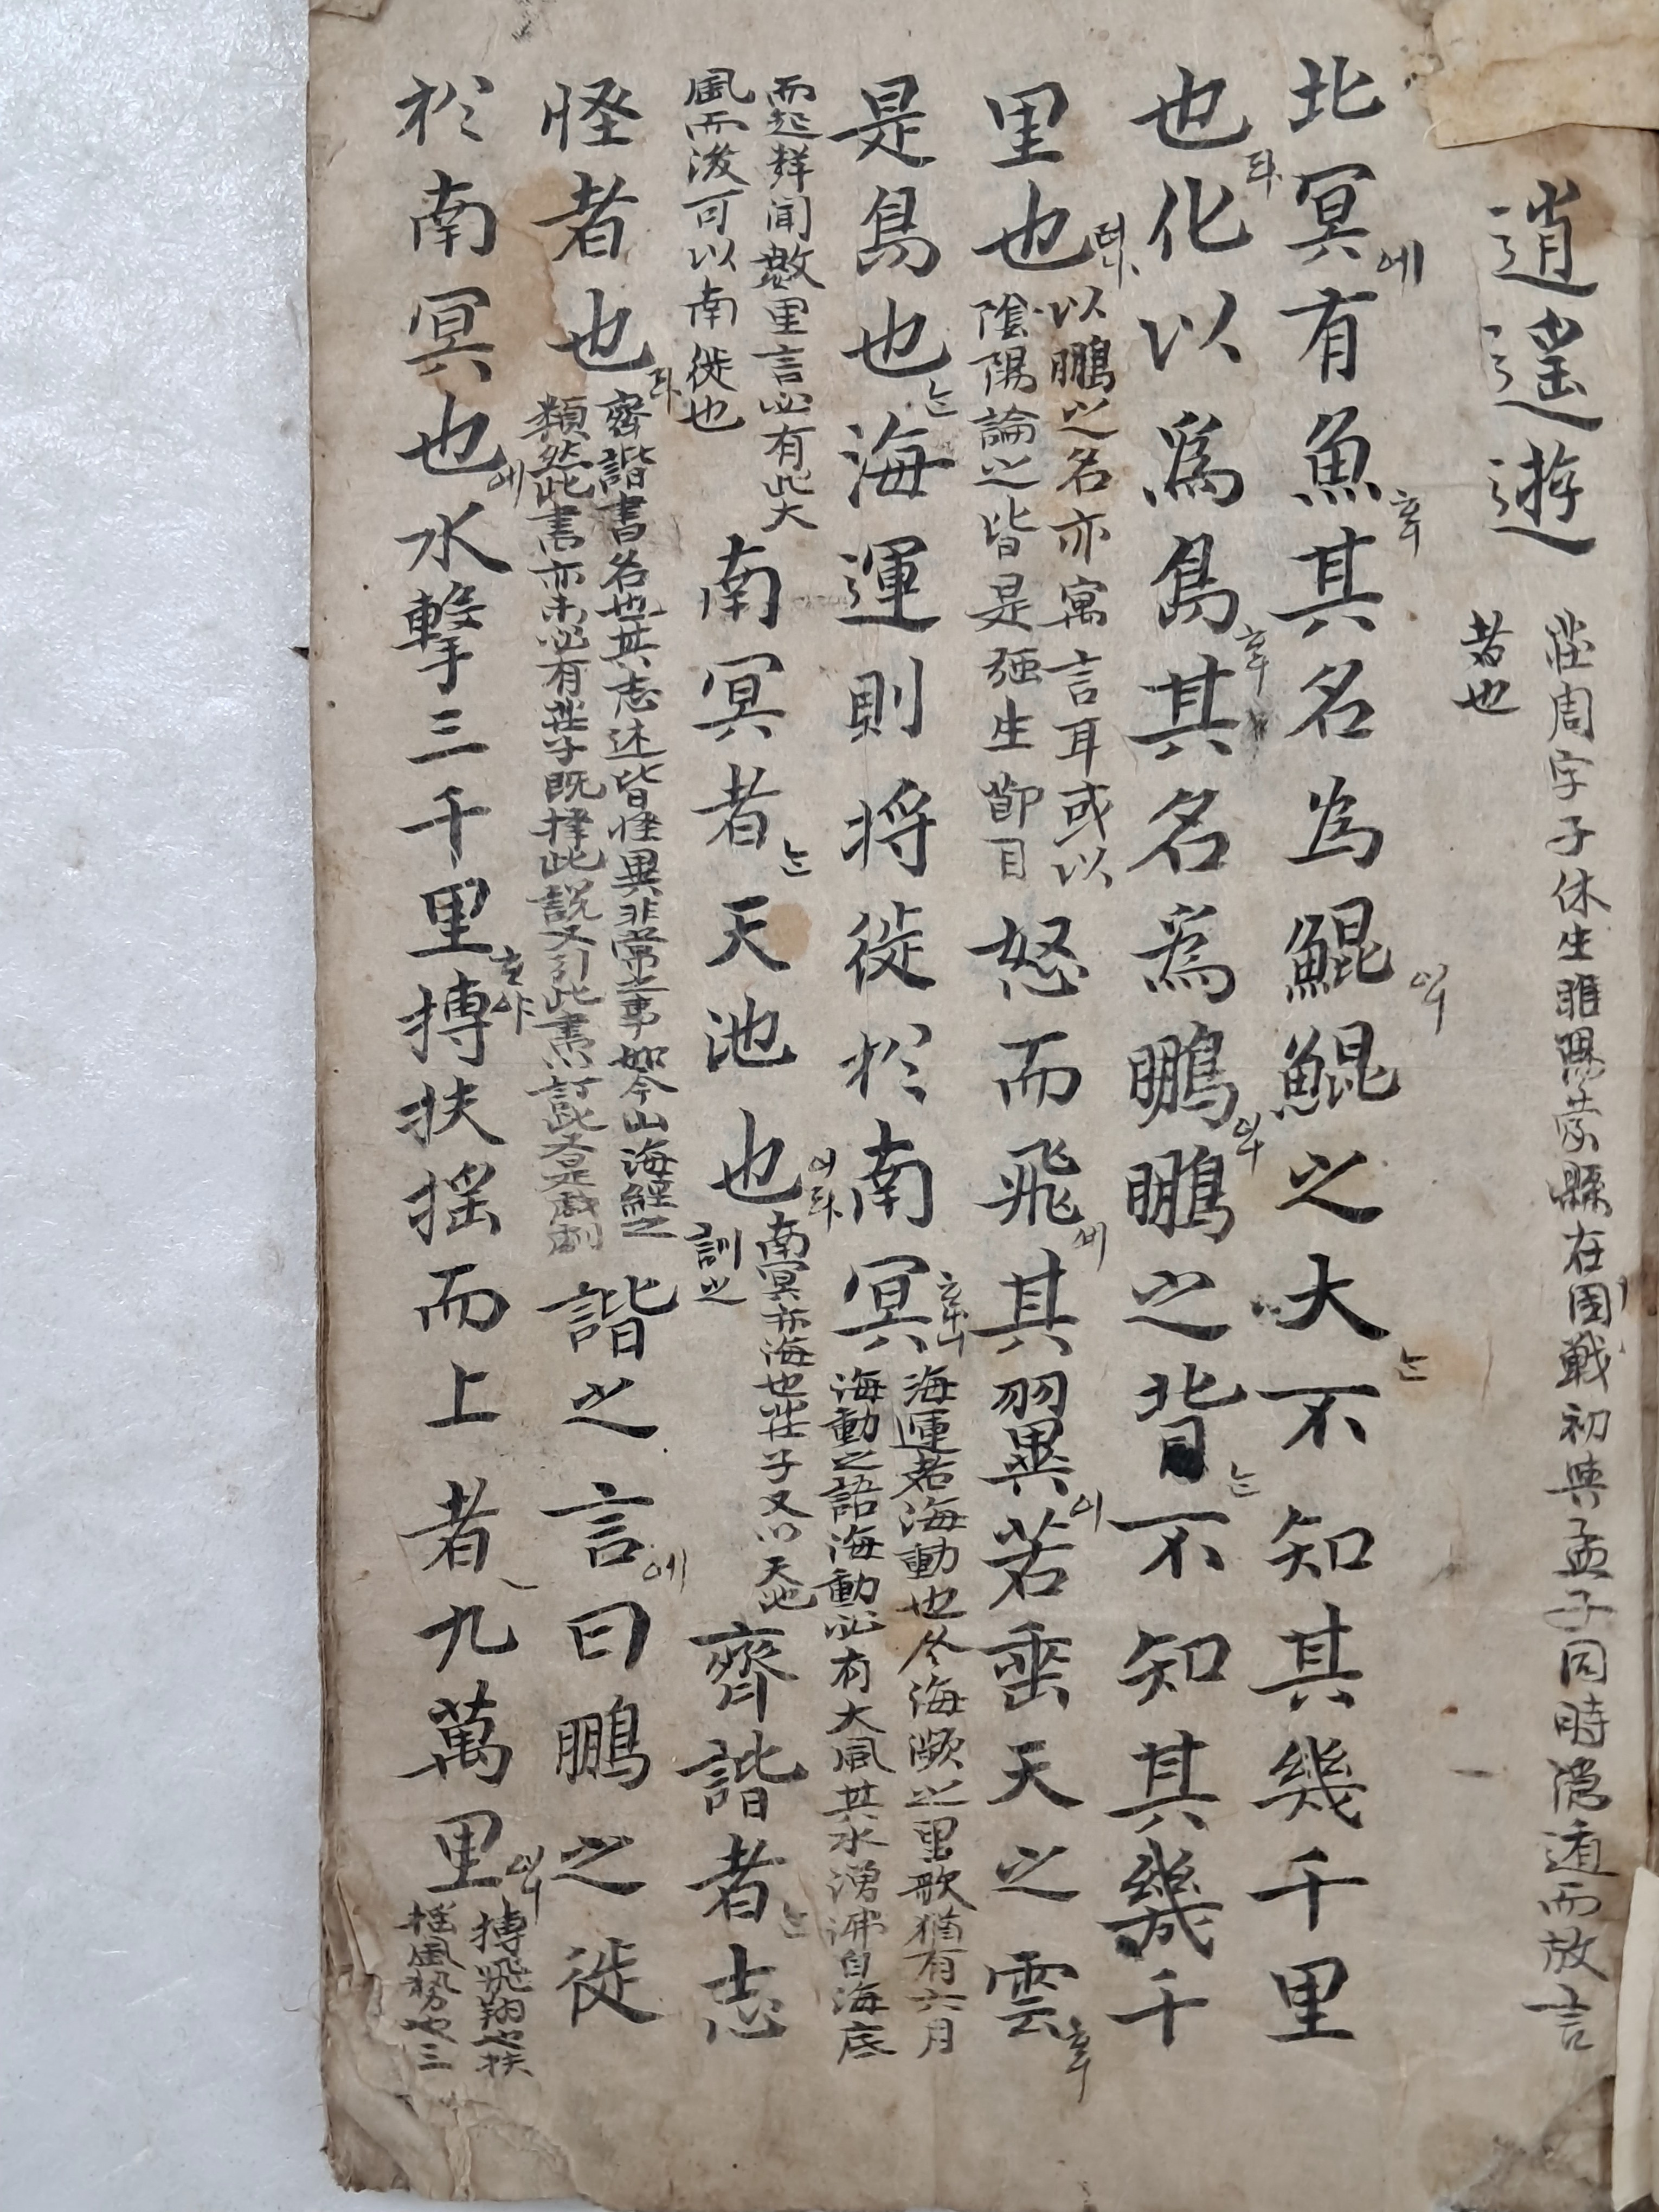 逍遥遊
莊周字子休生睢陽蒙縣在國戰初與孟子同時隱遁而放言
者也
北冥에有魚其名为鯤鯤之大는不知其幾千里
也라化以爲鳥其名爲鵬鵬之背는不知其幾千
里也
以鵬之名亦寓言耳或以
陰陽論之皆是强生節目
怒而飛其翼이若垂天之雲
是鳥也는海運則將徙於南冥
海運者海動也今海濒之里歌猶有六月
海動之語海動必有大風其水湧沸自海底
而起聲聞數里言必有此大
風而後可以南徙也
南冥者는天池也이라
南冥亦海也莊子又以天池
訓之
齊諧者는志
怪者也라
齊諧書名也其志述皆怪異非常之事如今山海經之
類然此書亦未必有莊子既撰此說又引此書以訂此又是戱劇
諧之言에曰鵬之徙
於南冥也에水擊三千里搏扶搖而上者九萬里
搏飛翔也扶
搖風勢也三